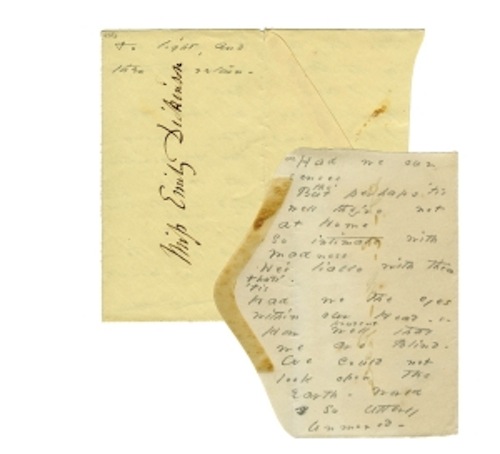 to light, and
then return -
Miss Emily Dickinson
Had we our
senses
tho'
But perhaps 'tis
well they're not
at Home
So intimate with
Madness
He's liable with them
that's
'tis
Had we the eyes
within our Head -
prudent
How well that
we are Blind -
We could not
look upon the
Earth -
So utterly
Unmoved -